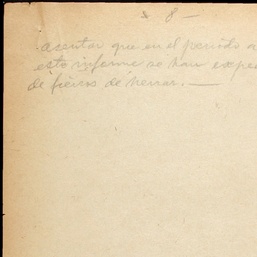 - 8 -
asentar que en el periodo a
este informe se han expe
de fierros de herrar. —